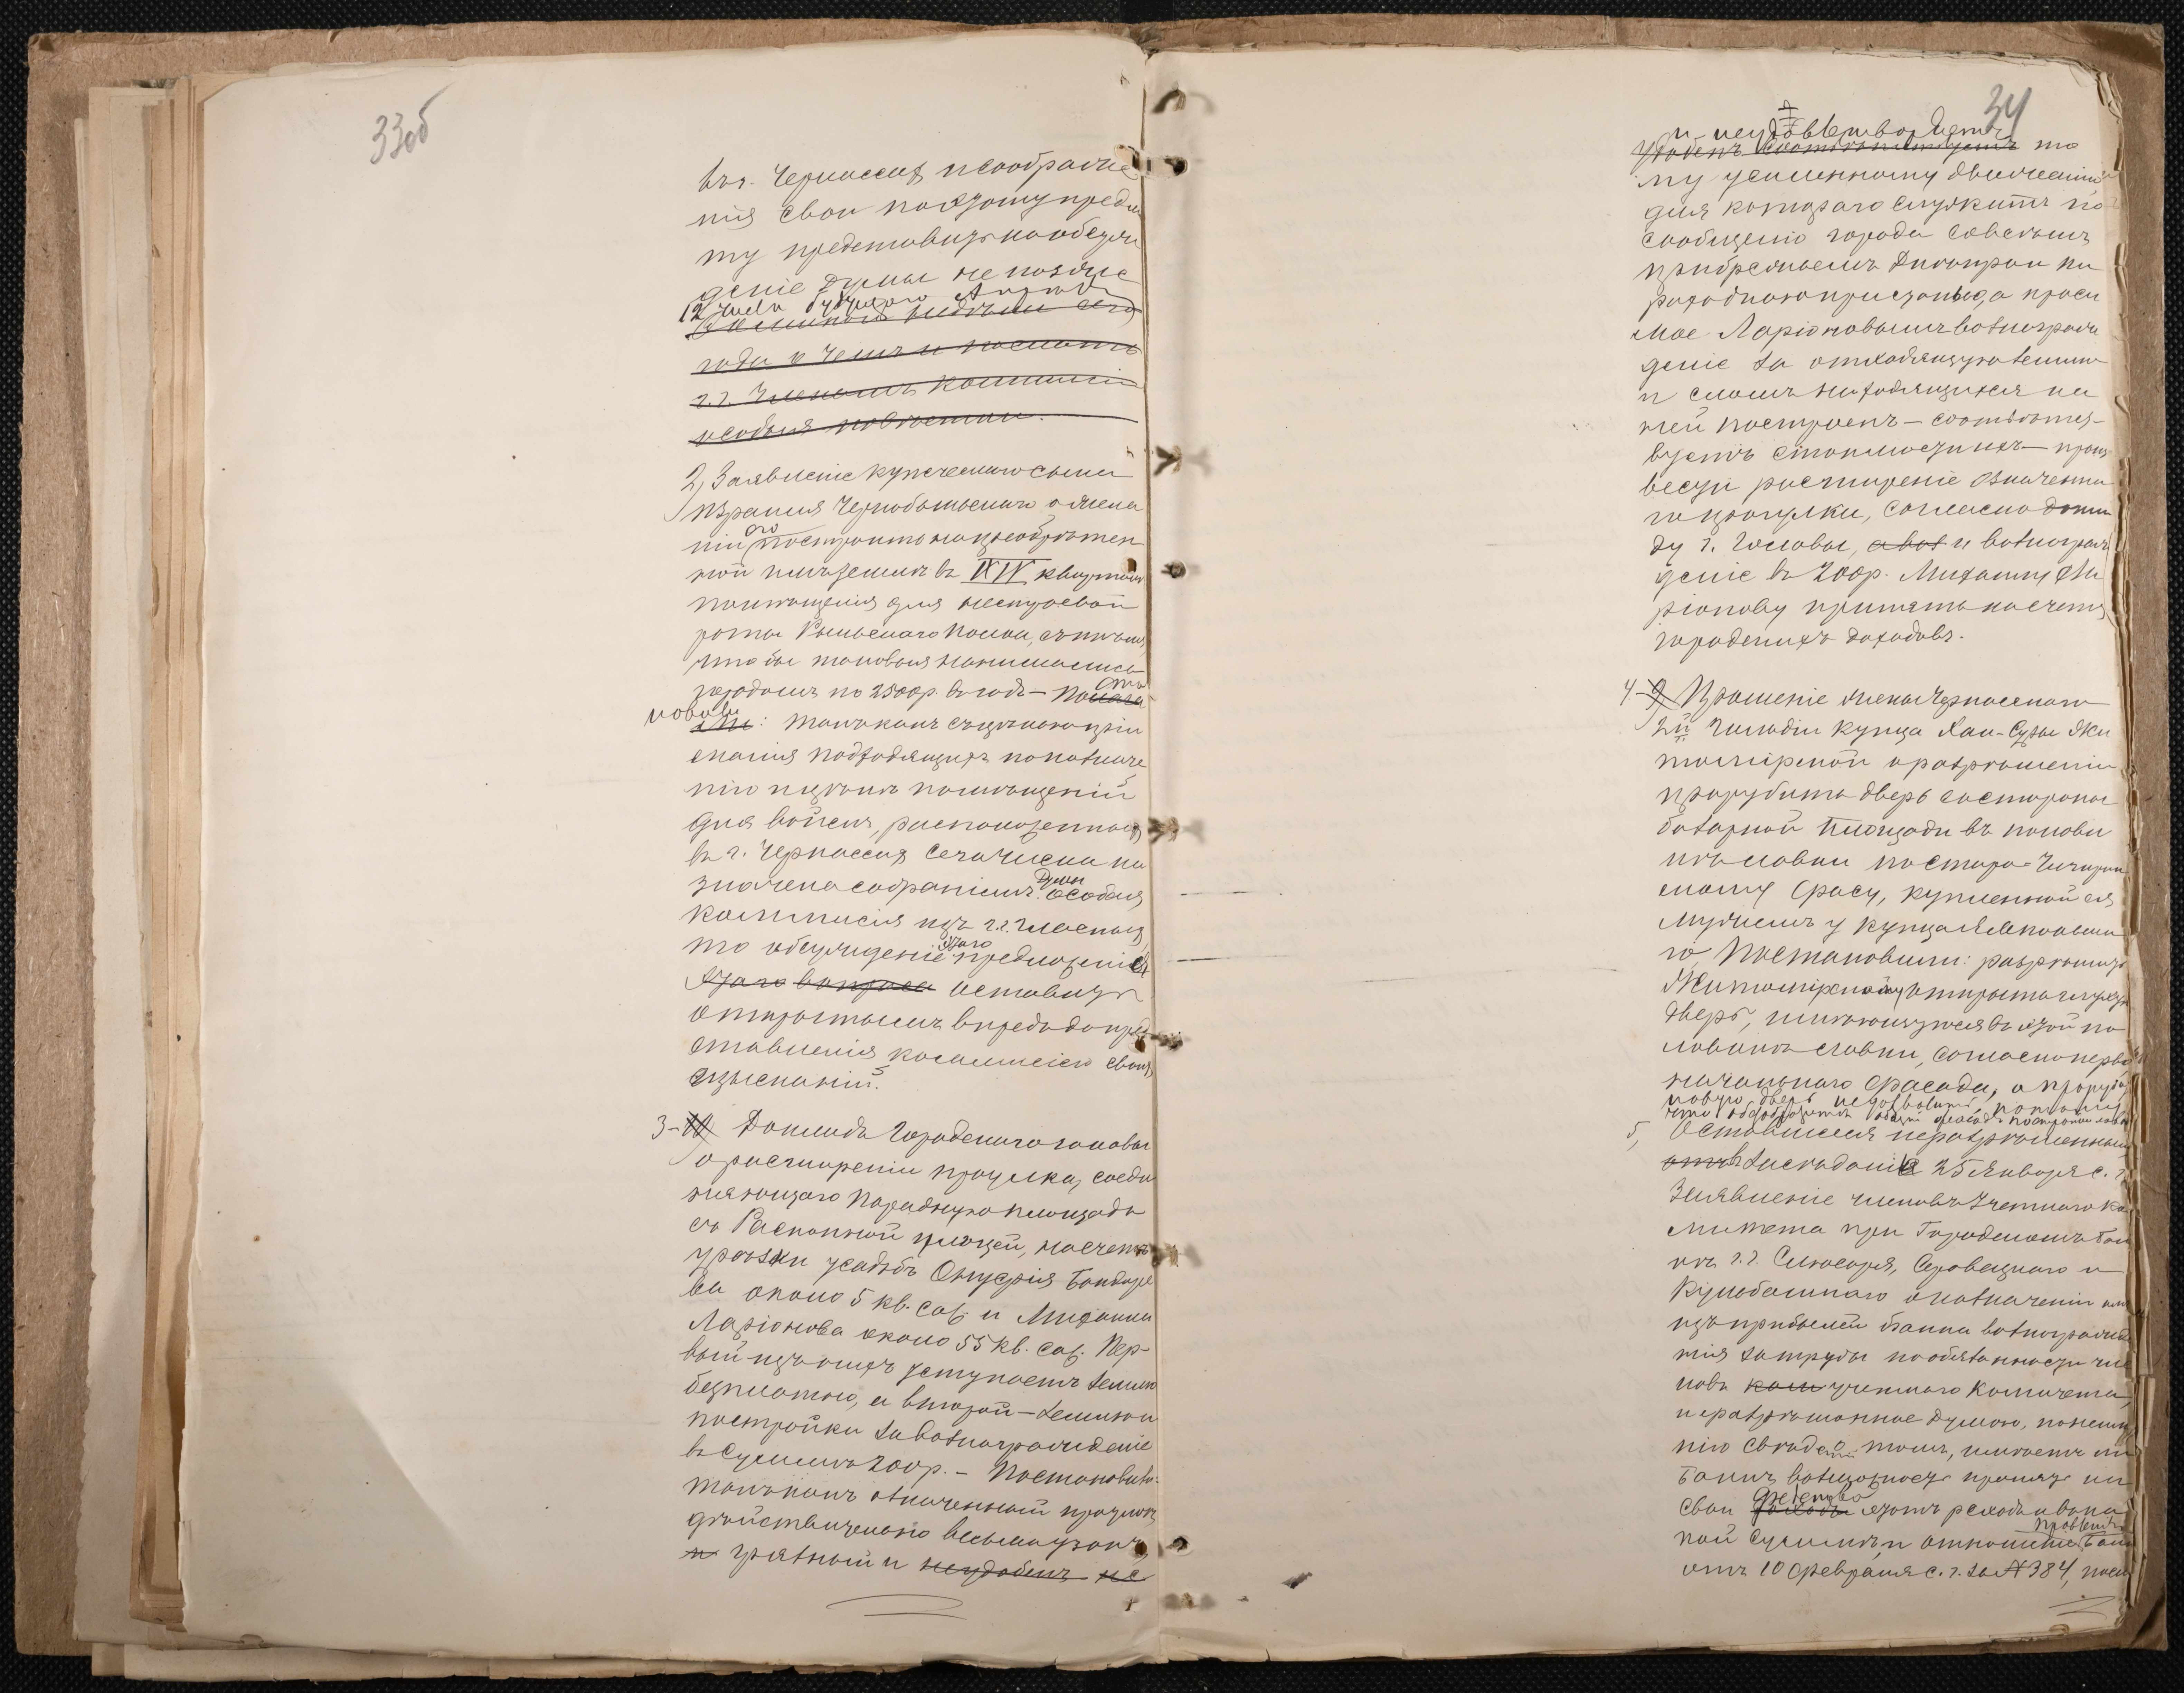 33об
въ г. Черкассах и соображе
нія свои по этому предме
ту представить на обсуж
деніе Думы не позже
12 числа будущаго Апреля
года о чемъ и послать
г.г. Членамъ Коммисіи
особыя повестки.
2) Заявленіе купеческаго сына
Израиля Чернобыльскаго о желаніи его
построить на пріобретен
ной им земле въ XIV квартале
помещенія для нестроевой
роты Рыльскаго полка, съ темъ,
чтобы таковыя нанимались
городомъ по 2500 р. въ годъ — Поста
новили: такъ какъ съ целью пріи
сканія подходящихъ по назначе
нію къ помещеній
для войскъ, расположенныхъ
въ г. Черкассах сего числа на
значена собраніемъ Думы особая
коммисія изъ г.г. Гласныхъ,
то обсужденіе этого предложенія
этаго вопроса оставить
открытымъ впредь до пред
ставленія коммисіею своихъ
изысканій.
3- 10) Докладъ Городского головы
о расширеніи проулка, соеди
няющаго Парадную площадь
съ Распопной улицей, на счетъ
урезки усадьбъ Онуфрія Бондаре
ва около 5 кв. саж. и Михаила
Ларіонова около 55 кв. саж. Пер-
вый изъ нихъ уступаетъ землю
безплатно, а второй — землю и
постройки за вознагражденіе
въ сумме 200 р. — Постановили:
такъ какъ означенный проулокъ
действительно весьма узокъ,
и грязный и неудобенъ не
34
и неудовлетворяетъ
удобенъ соответствуетъ то
му усиленному движенію,
для котораго служитъ по
сообщенію города съ
прибрежьемъ Днепра и па
роходною пристанью, а проси
мое Ларіоновымъ вознаграж
деніе за отходящую землю
и сломъ находящихся на
ней построекъ — соответст-
вуетъ стоимости ихъ — произ
вести расширеніе означенна
го проулка, согласно докла
ду г. Головы, а воз и вознаграж
деніе въ 200 р. Михаилу Ла
ріонову принять на счетъ
городскихъ доходовъ.
4- 9) Прошеніе жены Черкасскаго
2й гильдіи купца Хаи-Суры Жи
томірской о разрешеніи
прорубить дверь со стороны
базарной площади въ полови
не лавки по Старо-Чигирин
скому трасу, купленной ея
мужемъ у купца
го. Постановили: разрешить
Житомірской открыть глухую
дверь, имеющуюся въ этой по
ловине лавки, согласно перво
начального фасада, а прорубать
новую дверь не дозволить, потому
что обезобразится общий фасадъ построекъ лавокъ
5, Оставшееся неразрешеннымъ
въ заседаніе 25 Января с. г.
Заявленіе членовъ Учетнаго Ко
митета при Городскомъ Бан
ке г.г. Слюсаря, Серовецкаго и
о назначеніи имъ
изъ прибылей банка вознагражде
нія за труды по обязанности чле
новъ ком учетнаго Комитета,
неразрешенное Думою, по неиме
нію сведеній о томъ, имеетъ ли
Банкъ возможность принять на
свои средства этотъ расходъ и въ ка
кой сумме, и отношеніе Правленія Бан
отъ 10 Февраля с. г. за № 384, после